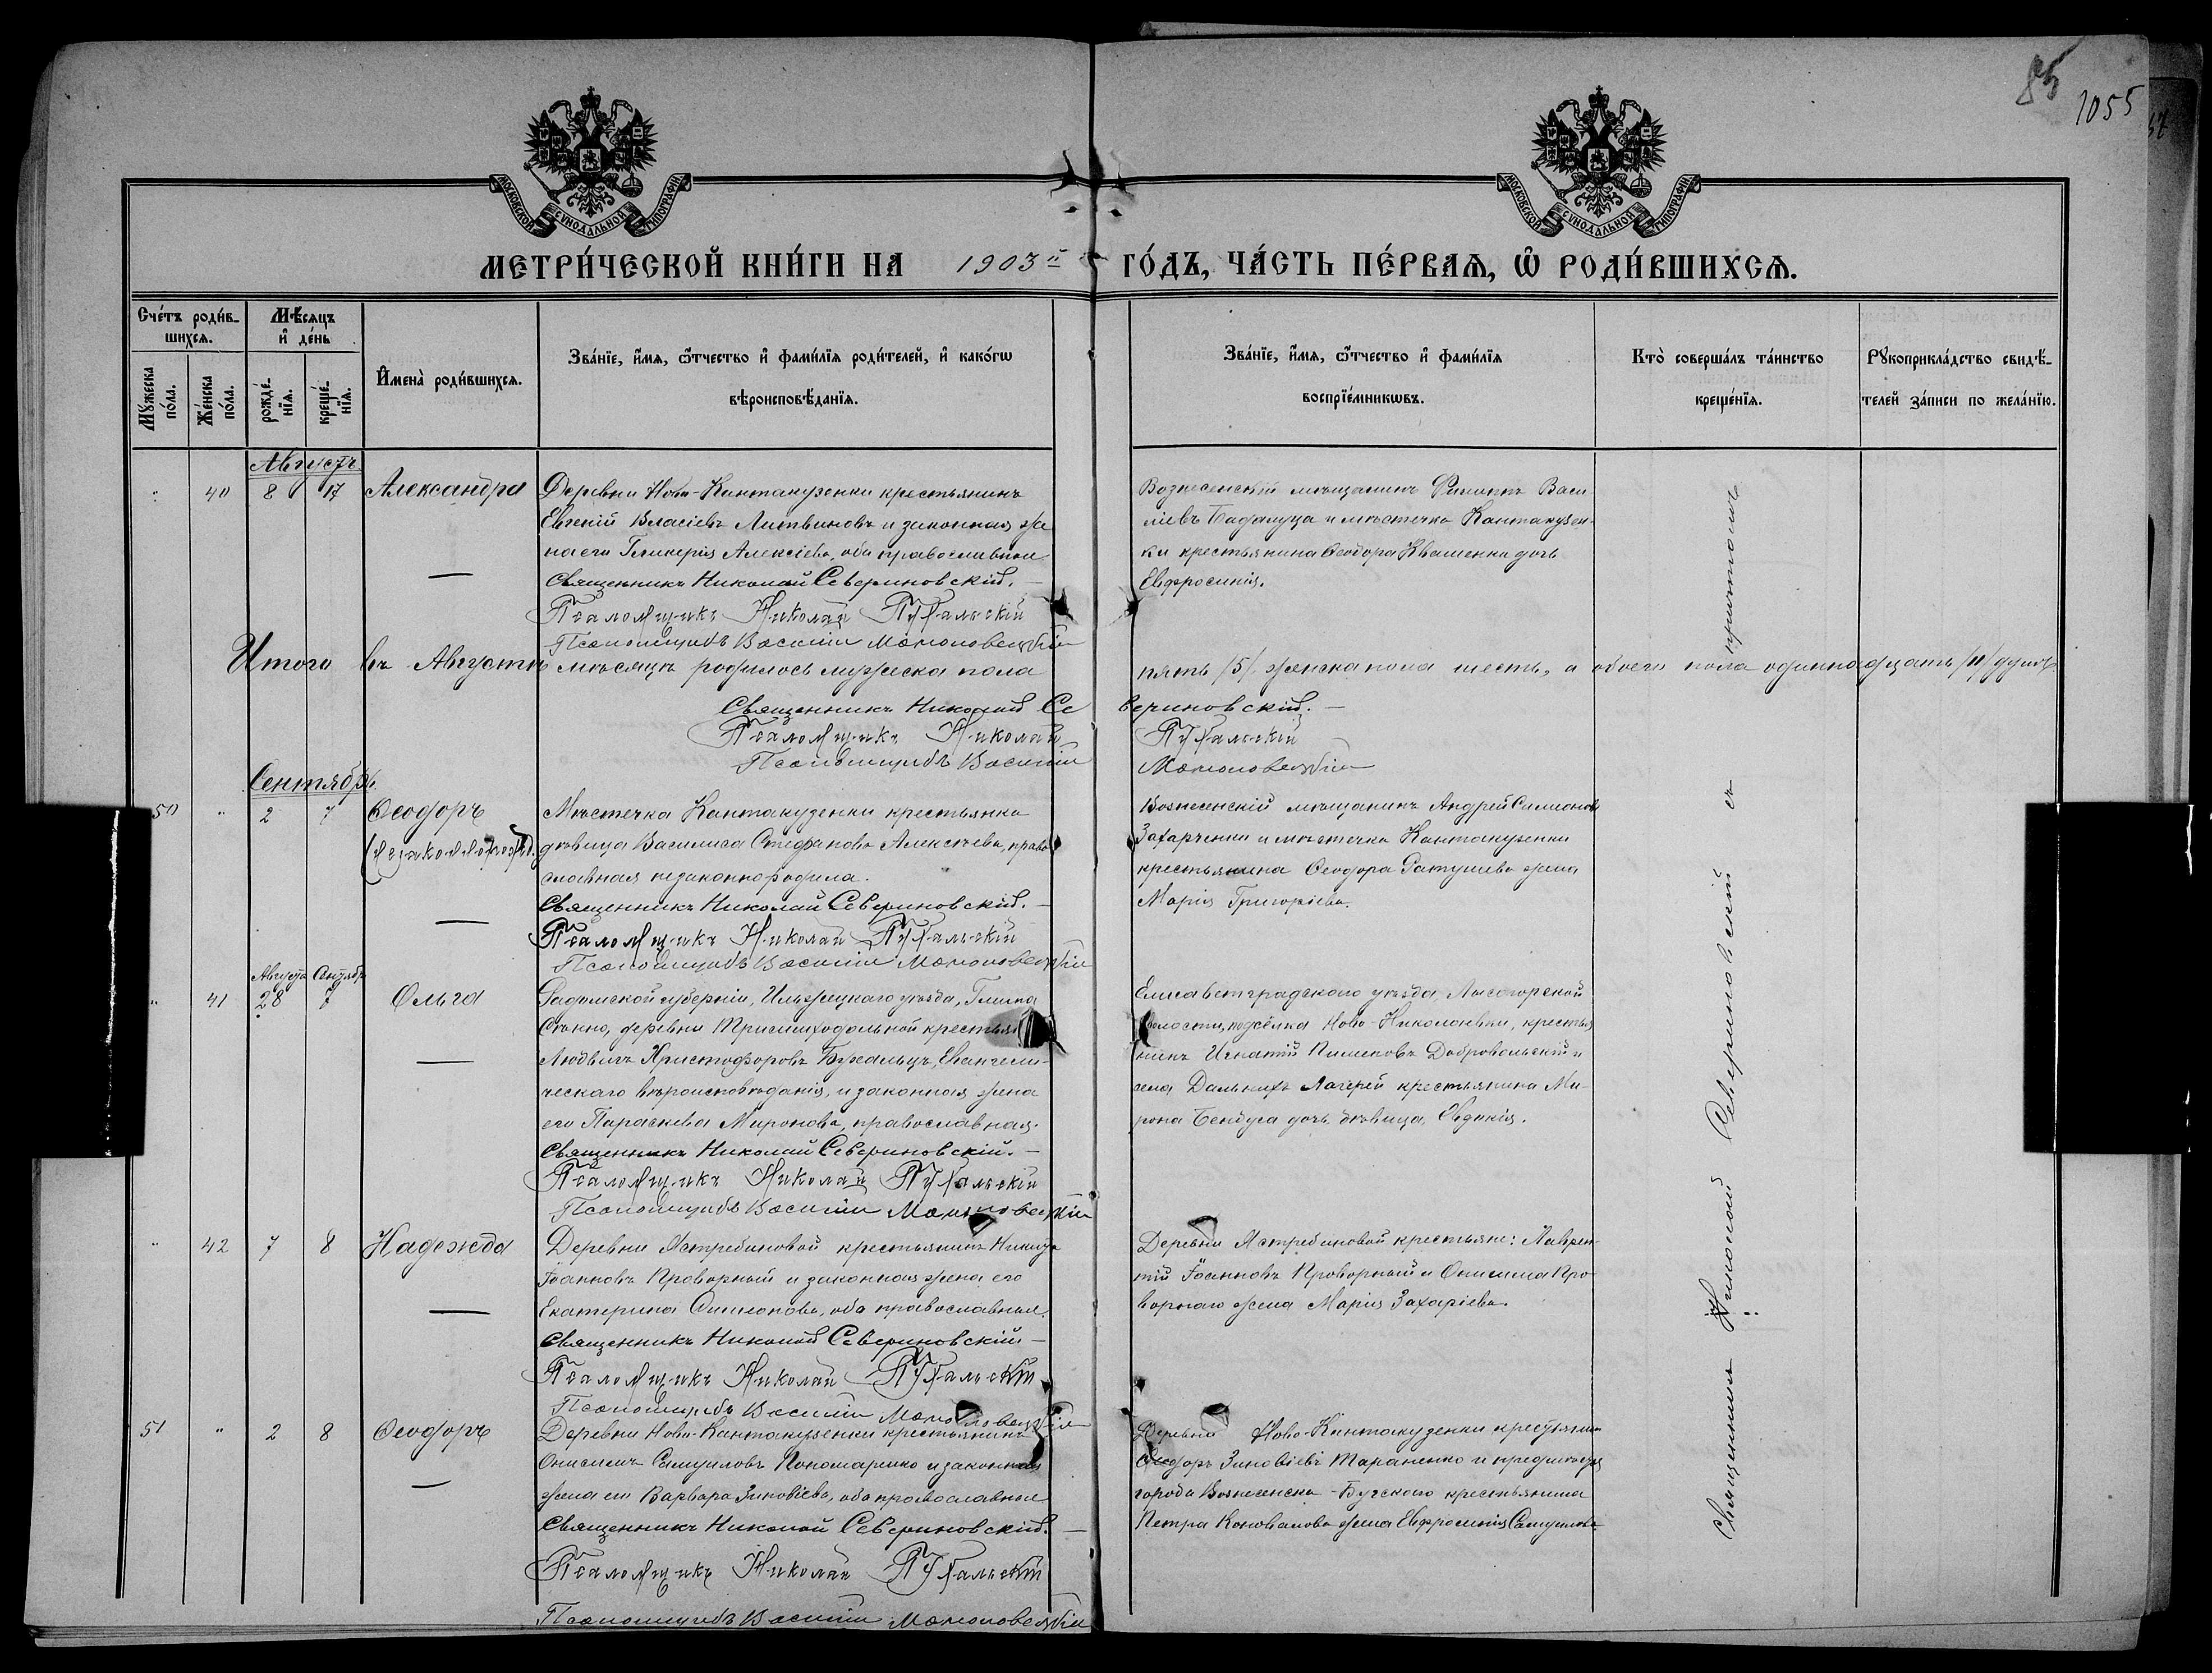 85
1055
МОСКОВСКОЙ СѴНОДАЛЬНОЙ ТИПОГРАФІИ
МОСКОВСКОЙ СѴНОДАЛЬНОЙ ТИПОГРАФІИ
МЕТРИ́ЧЕСКОЙ КНИ́ГИ НА 1903й ГО́ДЪ, ЧА́СТЬ ПЕ́РВАѦ, Ѡ҆ РОДИ́ВШИХСѦ.
Сче́тъ роди́в-
шихсѧ.
Мꙋ́жеска
по́ла.
Же́нска
по́ла.
Мѣ́сѧцъ
и҆ де́нь
рожде́-
нїѧ.
креще́-
нїѧ.
И҆мена̀ роди́вшихсѧ.
Зва́нїе, и҆́мѧ, ѻ҆́тчество и҆ фами́лїѧ роди́телей, и҆ како́гѡ
вѣроисповѣ́данїѧ.
Зва́нїе, и҆́мѧ, ѻ҆́тчество и҆ фами́лїѧ
воспрїе́мникѡвъ.
Кто̀ соверша́лъ та́инство
креще́нїѧ.
Рꙋкоприкла́дство свидѣ́-
телей за́писи по жела́нїю.
Августъ.
" 40 8 17 Александра
Деревни Ново-Кантакузенки крестьянинъ
Евгеній Власіевъ Литвиновъ и законная же
на его Гликерія Алексіева, оба православные
Священникъ Николай Севериновскій. —
Псаломщикъ Николай
Псаломщикъ Василій
Вознесенскій мѣщанинъ Филиппъ Васи
ліевъ Бадалуца и мѣстечка Кантакузен-
ки крестьянина Ѳеодора Квашенки дочь
Евфросинія.
Итого въ Августѣ мѣсяцѣ родилось мужеска пола пять /5/ женска пола шесть, а обоего пола одиннадцать /11/ душъ
Священникъ Николай Севериновскій. —
Псаломщикъ Николай
Псаломщикъ Василій
Сентябрь.
50 " 2 7 Ѳеодоръ
(незаконнорожд.)
Мѣстечка Кантакузенки крестьянка
дѣвица Василиса Стефанова Алексѣева, право
славная незаконнородила.
Священникъ Николай Севериновскій. —
Псаломщикъ Николай
Псаломщикъ Василій
Вознесенскій мѣщанинъ Андрей Симеоновъ
Захарченки и мѣстечка Кантакузенки
крестьянина Ѳеодора Ратушева жена
Марія Григоріева.
Августа Сентябр
" 41 28 7 Ольга
Радомской губерніи, Ильжецкаго уѣзда, Гмина
деревни крестьян
Людвигъ Христофоровъ Евангели-
ческаго вѣроисповѣданія, и законная жена
его Параскева Миронова, православная.
Священникъ Николай Севериновскій. —
Псаломщикъ Николай
Псаломщикъ Василій
Елисаветградскаго уѣзда, Лысогорской
волости, посёлка Ново-Николаевки, крестья
нинъ Игнатій Пименовъ Добровольскій и
села Дальнихъ Лагерей крестьянина Ми-
рона Бендуга дочь дѣвица, Евдокія.
" 42 7 8 Надежда
Деревни Ястребиновой крестьянинъ Никита
Іоанновъ Проворный и законная жена его
Екатерина Симеонова, оба православные.
Священникъ Николай Севериновскій —
Псаломщикъ Николай
Псаломщикъ Василій
Деревни Ястребиновой крестьяне: Лаврен-
тій Іоанновъ Проворный и Онисима Про-
ворнаго жена Марія Захаріева.
51 " 2 8 Ѳеодоръ
Деревни Ново-Кантакузенки крестьянинъ
Онисимъ Самуиловъ Пономаренко и законная
жена его Варвара Зиновіева, оба православные
Священникъ Николай Севериновскій. —
Псаломщикъ Николай
Псаломщикъ Василій
Деревни Ново-Кантакузенки крестьянинъ
Ѳеодоръ Зиновіевъ Тараненко и предмѣстья
города Вознесенска - Бугскаго крестьянина
Петра Коновалова жена Евфросинія Самуилова
Священникъ Николай Севериновскій съ причтомъ